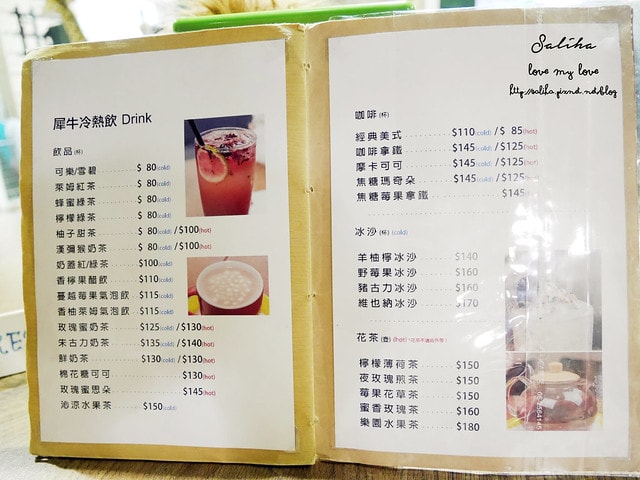 犀牛冷熱飲 Drink
飲品(杯)
可樂/雪碧 $ 80(cold)
萊姆紅茶 $ 80(cold)
蜂蜜綠茶 $ 80(cold)
檸檬綠茶 $ 80(cold)
柚子甜茶 $ 80(cold) / $100(hot)
漢彌猴奶茶 $ 80(cold) / $100(hot)
奶蓋紅/綠茶 $100(cold)
香檸果醋飲 $110(cold)
蔓越莓果氣泡飲 $115(cold)
香柚萊姆氣泡飲 $115(cold)
玫瑰蜜奶茶 $125(cold) / $130(hot)
朱古力奶茶 $135(cold) / $140(hot)
鮮奶茶 $130(cold) / $130(hot)
棉花糖可可 $130(hot)
玫瑰蜜思朵 $145(hot)
沁涼水果茶 $150(cold)
Saliha
love my love
http://saliha.pixnet.net/blog
咖啡(杯)
經典美式 $110(cold) / $ 85(hot)
咖啡拿鐵 $145(cold) / $125(hot)
摩卡可可 $145(cold) / $125(hot)
焦糖瑪奇朵 $145(cold) / $125(hot)
焦糖莓果拿鐵 $145(hot)
冰沙(杯)(cold)
羊柚檸冰沙 $140
野莓果冰沙 $160
豬古力冰沙 $160
維也納冰沙 $170
花茶(壺)(hot)
檸檬薄荷茶 $150
夜玫瑰煎茶 $150
莓果花草茶 $150
蜜香玫瑰茶 $160
樂園水果茶 $180